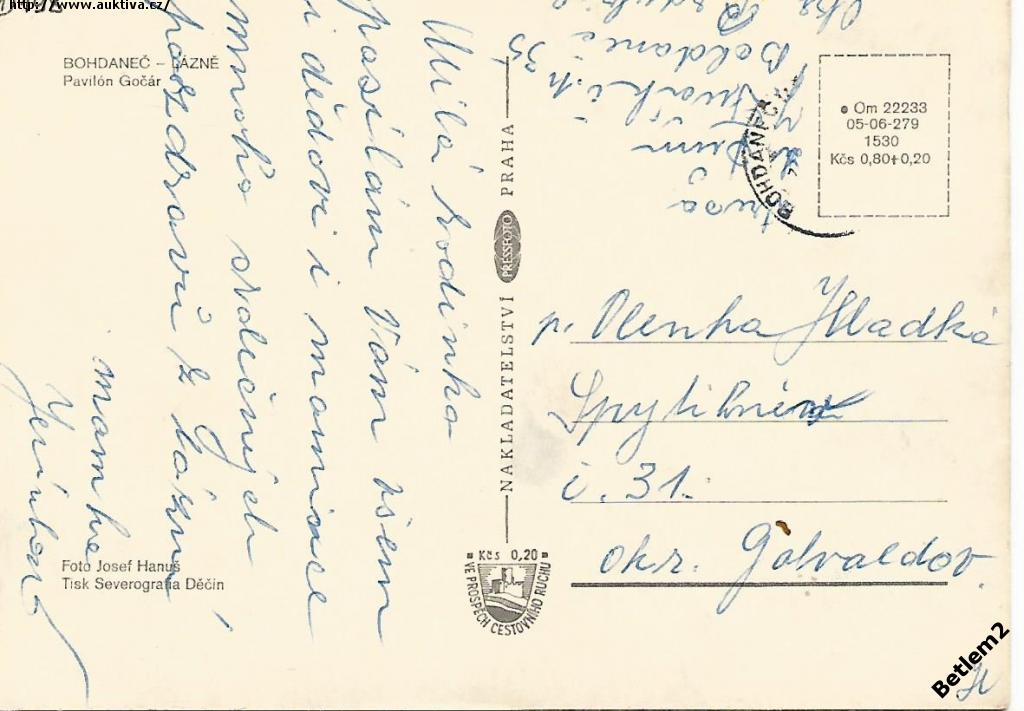 http://www.auktiva.cz/
BOHDANEČ – LÁZNĚ
Pavilón Gočár
Milá rodinko
posílám Vám všem
i dědovi i mamince
mnoho srdečných
pozdravů z lázní
Foto Josef Hanuš
Tisk Severografia Děčín
NAKLADATELSTVÍ PRESSFOTO PRAHA
Kčs 0,20
VE PROSPĚCH CESTOVNÍHO RUCHU
Om 22233
05-06-279
1530
Kčs 0,80+0,20
BOHDANEČ
p. Olenka Hladká
Spytihněv
č. 31.
okr. Gotvaldov
Betlem2